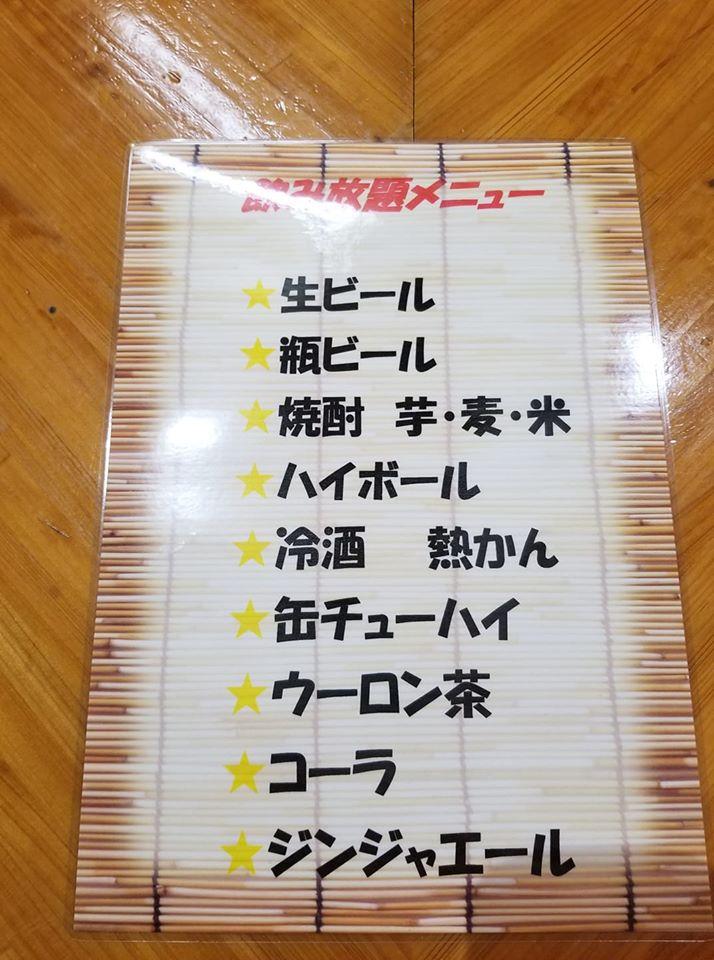 飲み放題メニュー
★生ビール
★瓶ビール
★焼酎 芋・麦・米
★ハイボール
★冷酒 熱かん
★缶チューハイ
★ウーロン茶
★コーラ
★ジンジャエール